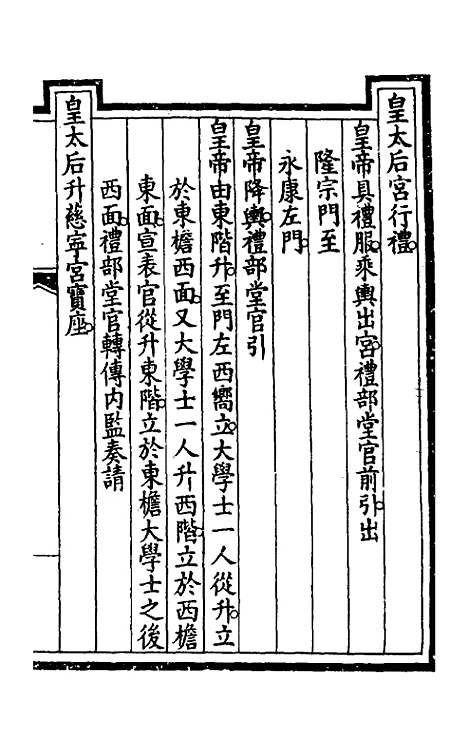 皇太后宮行禮。
皇帝具禮服。乘輿出宮。禮部堂官前引。出
隆宗門至
永康左門。
皇帝降輿。禮部堂官引
皇帝由東階升。至門左西嚮立。大學士一人從升。立
於東檐西面。又大學士一人升西階。立於西檐
東面。宣表官從升東階。立於東檐大學士之後
西面。禮部堂官轉傳內監奏請
皇太后升慈寧宮寶座。